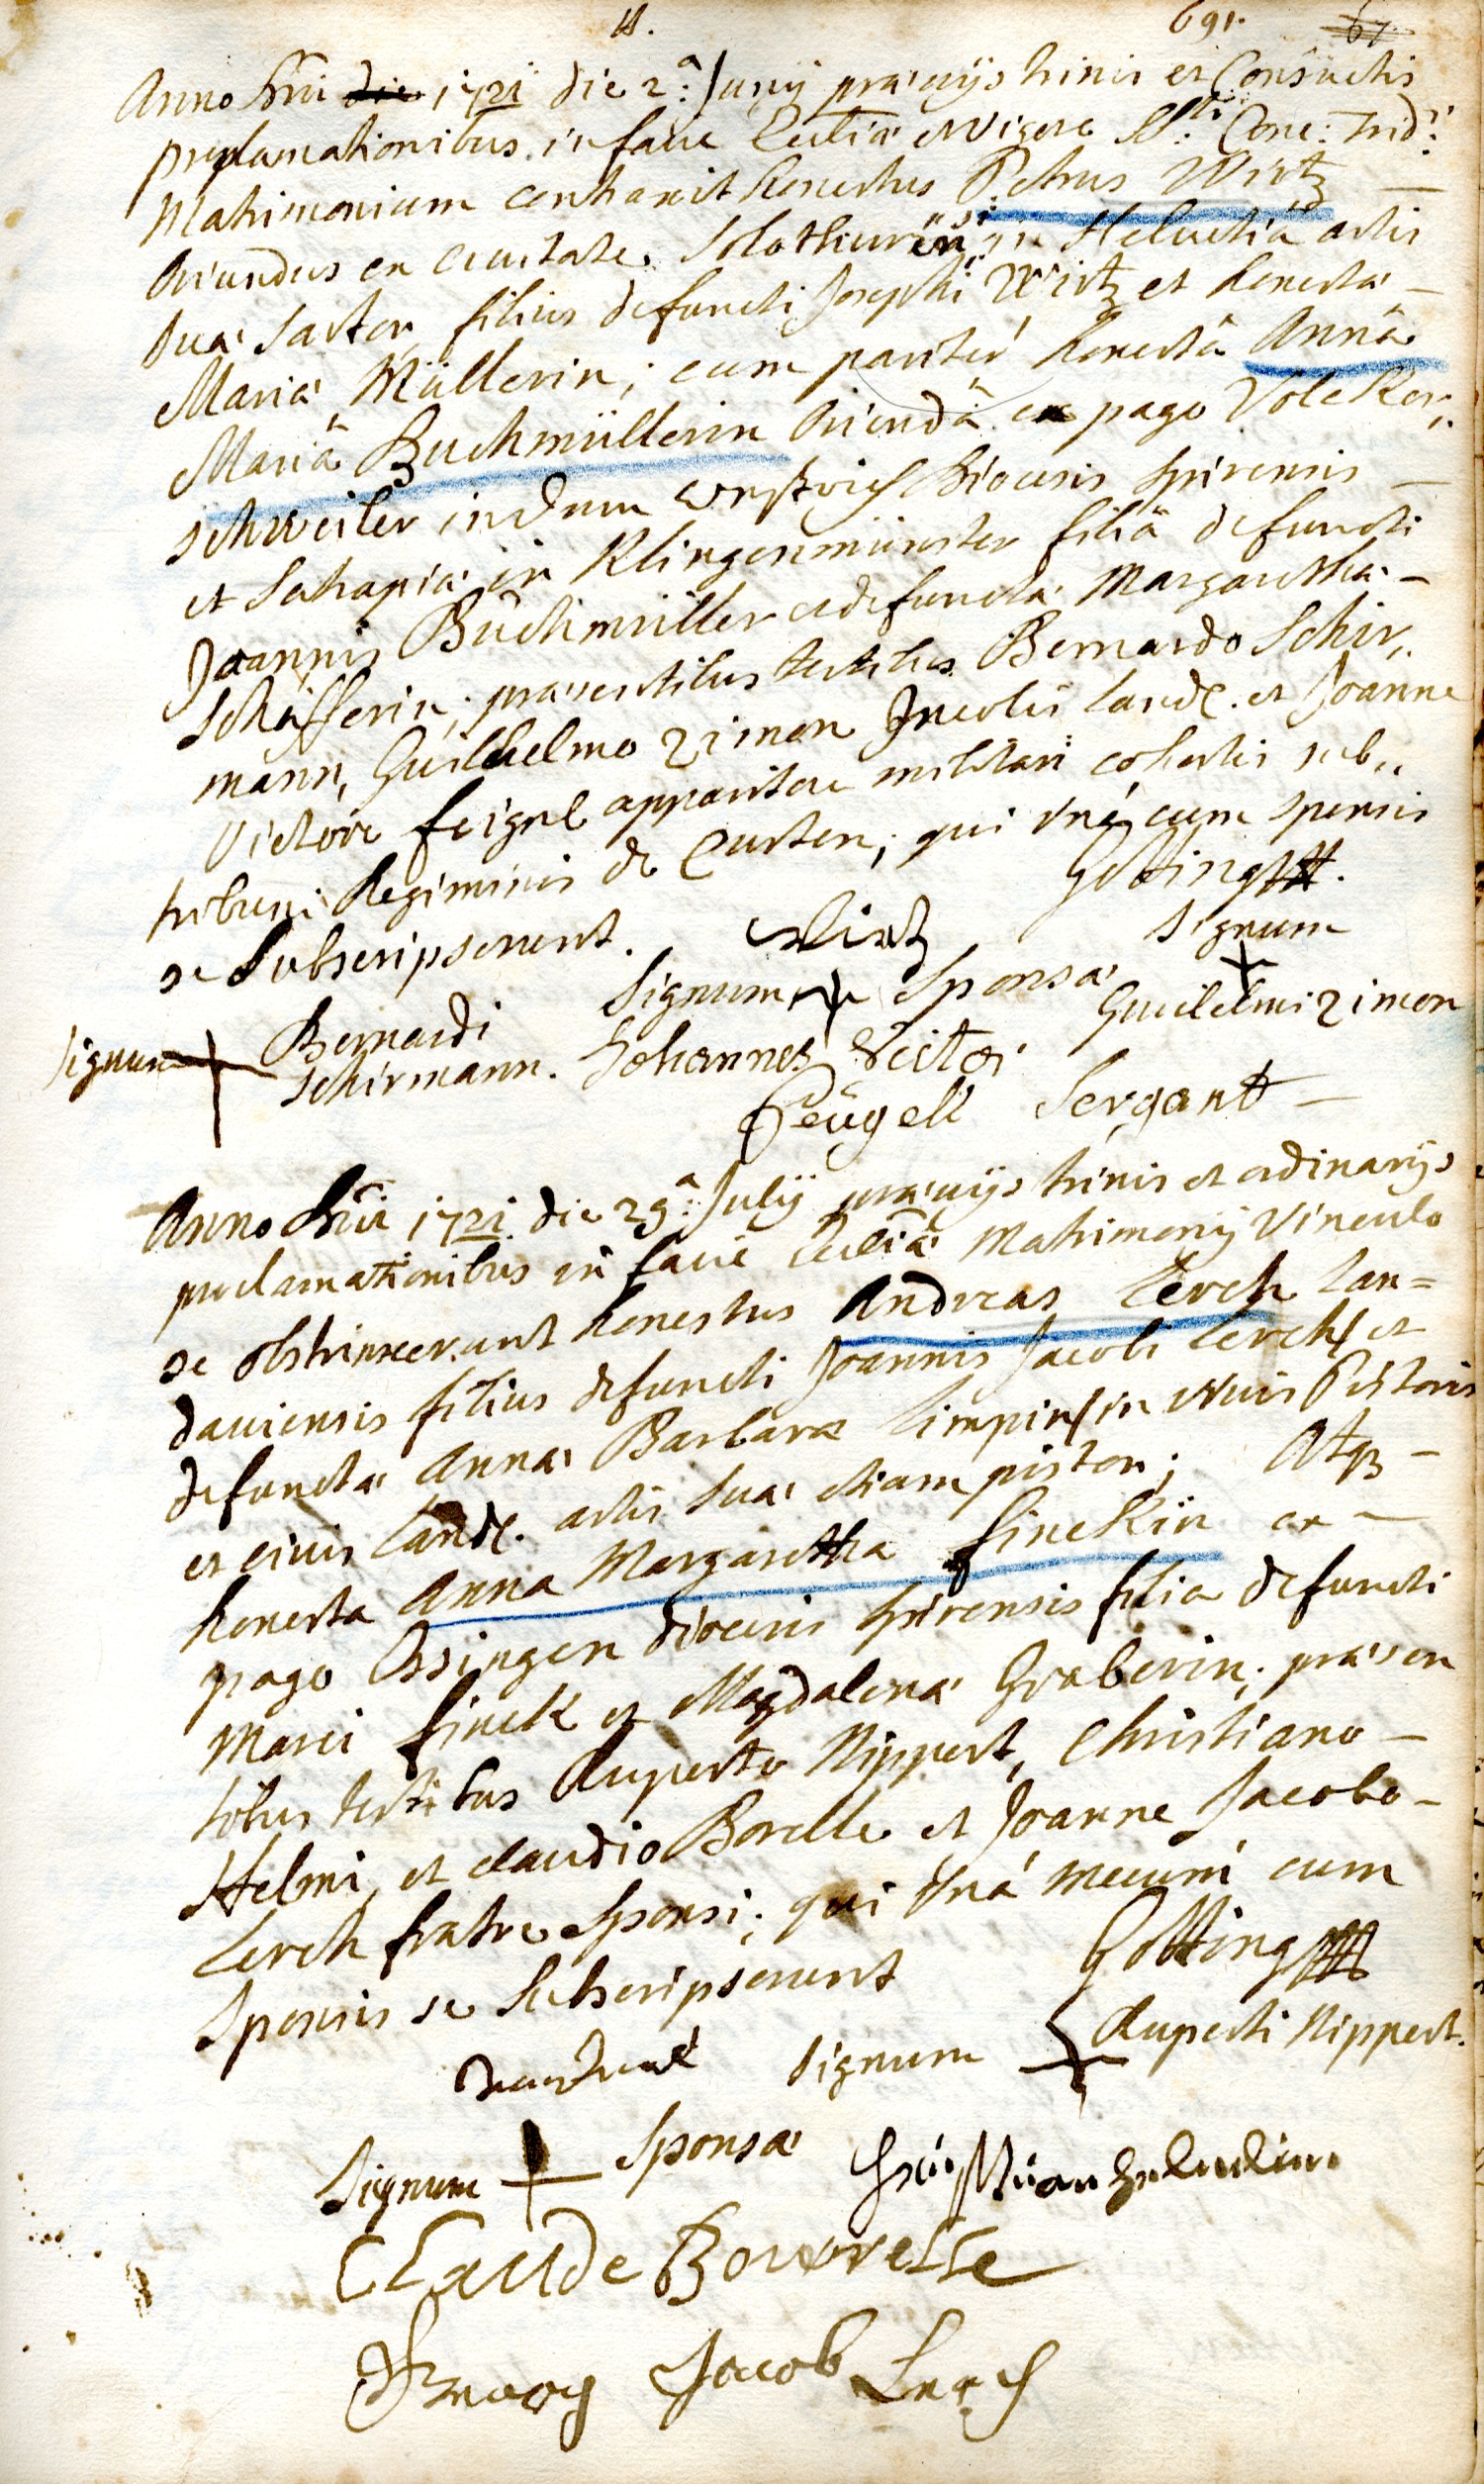 11. 691. 67.
Anno Dni die 1721 die 2.ª Junÿ præviÿs trinis et Consuetis
proclamationibus in facie Ecclīæ et vigore Sti. Conc: Trid:
Matrimonium contraxit honestus Petrus Wirtz —
Oriundus ex Civitate Solothurensi in Helvetiâ artis
suæ Sartor, filius defuncti Josephi Wirtz et honestæ —
Mariæ Müllerin; cum pariter honestâ Annâ
Mariâ Buchmüllerin Oriundâ ex pago Volcker,,
schweiler in dem Westrich Diœcesis Spirensis —
et Satrapiæ in Klingenmünster filiâ defuncti
Joannis Büchmüller et defunctæ Margarethæ —
Schäfferin; præsentibus testibus Bernardo Schir,,
mann, Guilhelmo Zimon Incolis Land. et Joanne
Victore feigel apparitore militari cohortis sub,,
tribuni Regiminis de Curten; qui unà cum sponsis
se Subscripserunt. Gotting
Wirtz Signum
Signum Sponsæ Guilelmi Zimon
Signum Bernardi
Schirmann. Johannes Victor
Feügell Sergant —
Anno Dni 1721 die 29.ª Julÿ præviÿs trinis et ordinariÿs
proclamationibus in facie Ecclīæ Matrimonÿ Vinculo
se obstrinxerunt honestus Andreas Lerch Lan=
daviensis filius defuncti Joannis Jacobi Lerch/ et
defunctæ Annæ Barbaræ Limpin/ in vivis Pistoris
et civis Land. artis suæ etiam pistor; Atq3 —
honesta Anna Margaretha Finckin ex —
pago Essingen diœcesis Spirensis filia defuncti
Marci Finck et Magdalenæ Graberin; præsen
tibus testibus Ruperto Nippert, Christiano —
Helmi, et claudio Borelle et Joanne Jacobo —
Lerch fratre Sponsi; qui Unà mecum cum
Sponsis se Subscripserunt Gotting
Signum Ruperti Nippert.
Signum Sponsæ
Claude Bourrelle
Jacob Lerch